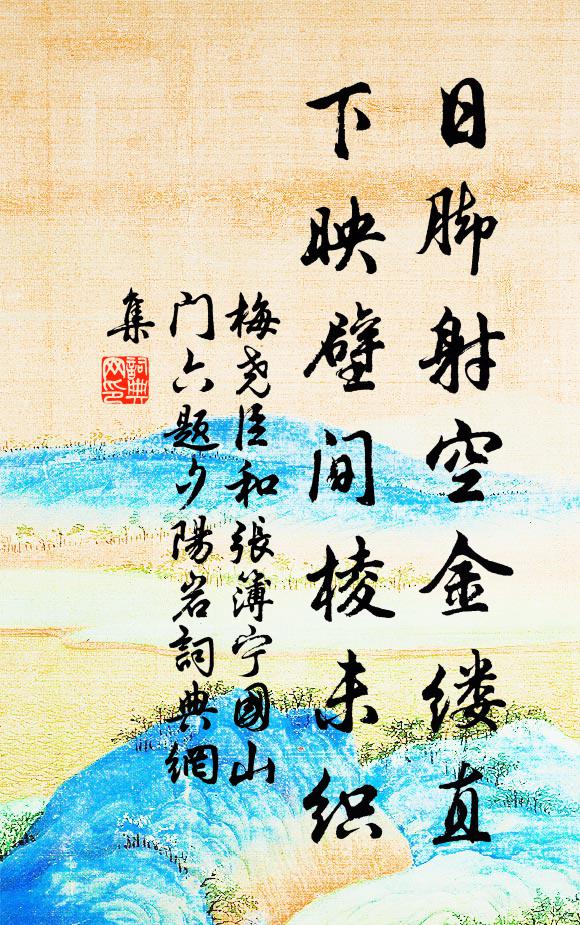 日脚射空金缕直
下映壁间棱未织
梅尧臣和張簿宁國山
门六题夕陽岩詞典網
集
詞典網印